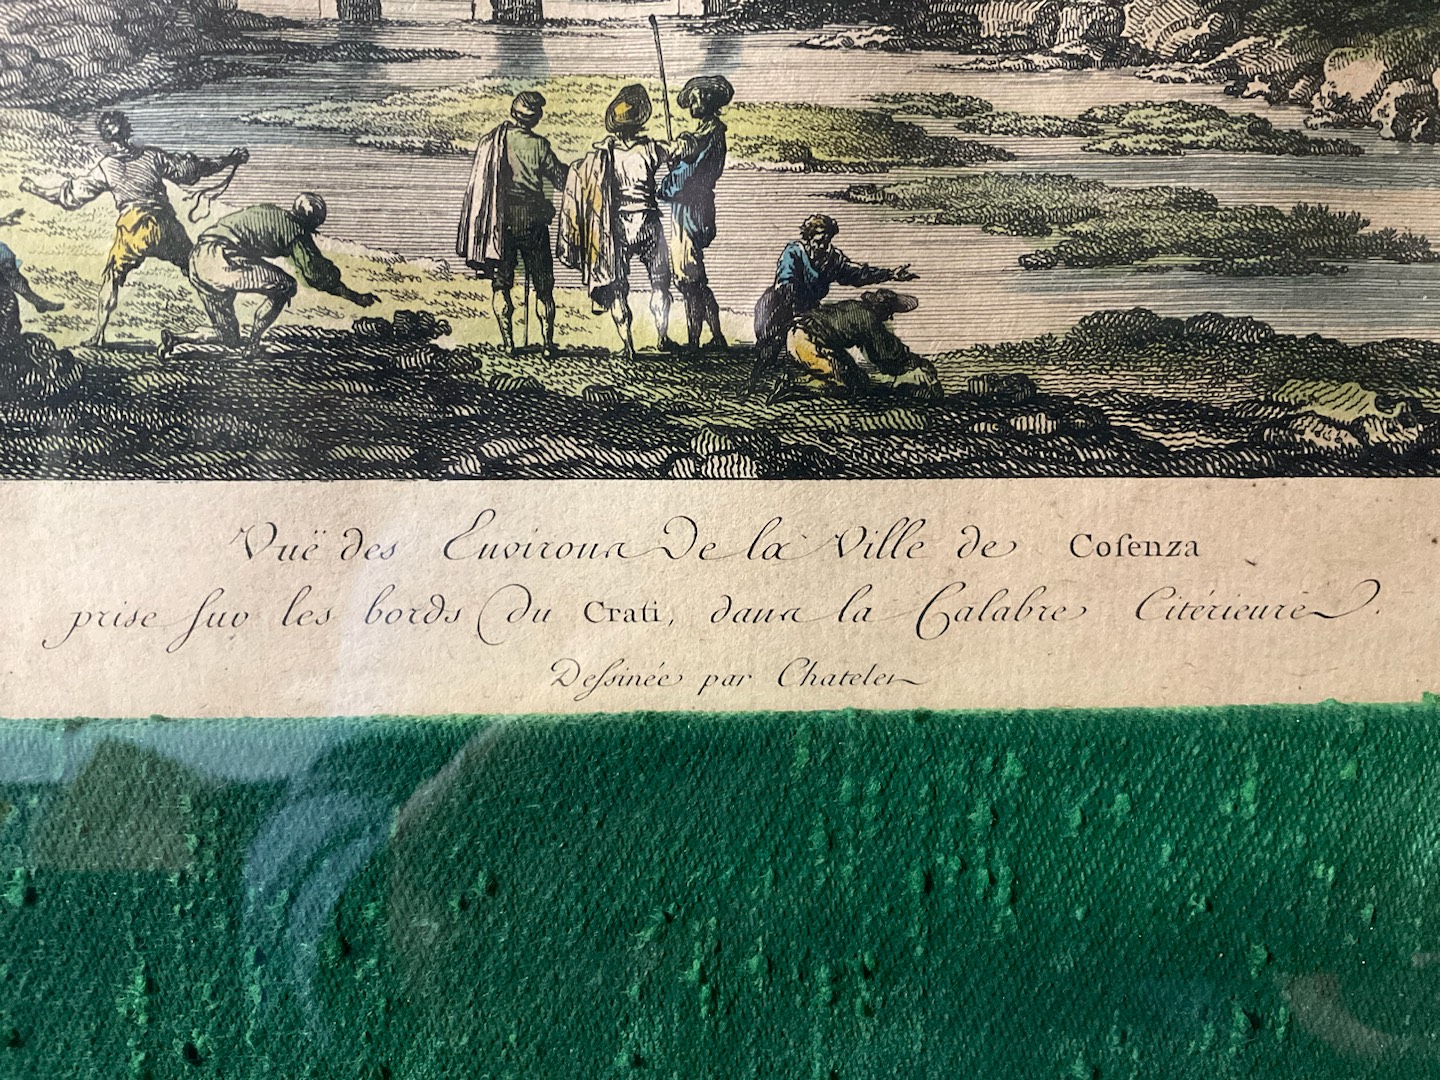 Vuë des Environs De la Ville de Coſenza
prise ſur les bords du Crati, dans la Calabre Citérieure.
Deſsinée par Chatelet